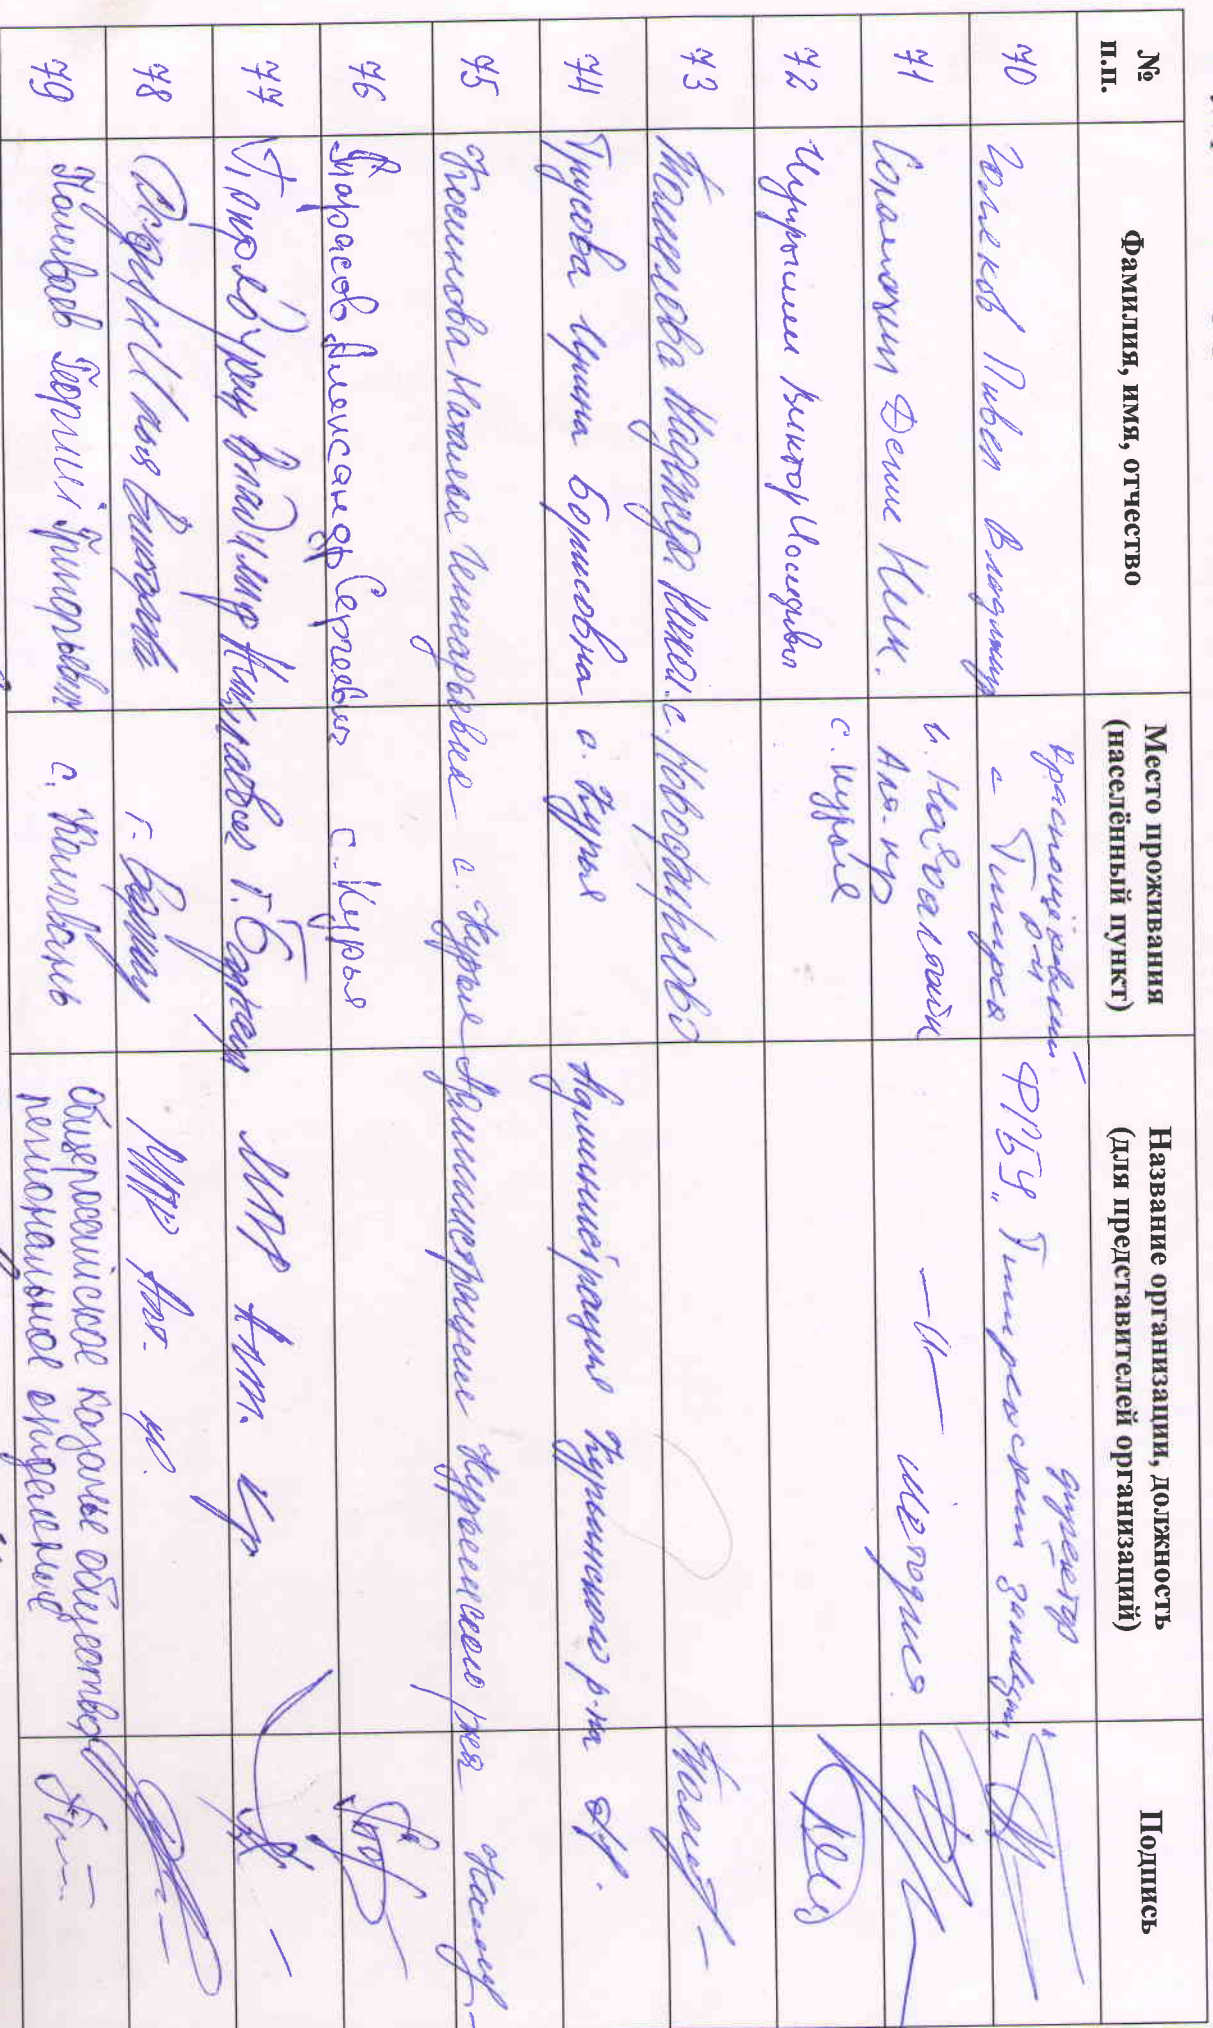 № п.п. Фамилия, имя, отчество Место проживания (населённый пункт) Название организации, должность (для представителей организаций) Подпись
70 Голяков Павел Владимир Краснощёковский р-н с Тигирек ФГБУ "Тигирекский заповедник" директор
71 Денис Ник. Алт. кр — и —
72 Виктор с. Курья
73 Надежда с. Новофирсово
74 Трусова Ирина Борисовна с. Курья Администрация Курьинского р-на
75 Косинова Наталья Геннадьевна с. Курья Администрация Курьинского р-на
76 Тарасов Александр Сергеевич с. Курья
77 Владимир Николаевич г. МПР Алт. кр
78 Илья Викторович г. Барнаул МПР Алт. кр.
79 Полеваев Георгий Григорьевич с. Колывань Общероссийское казачье общество региональное отделение